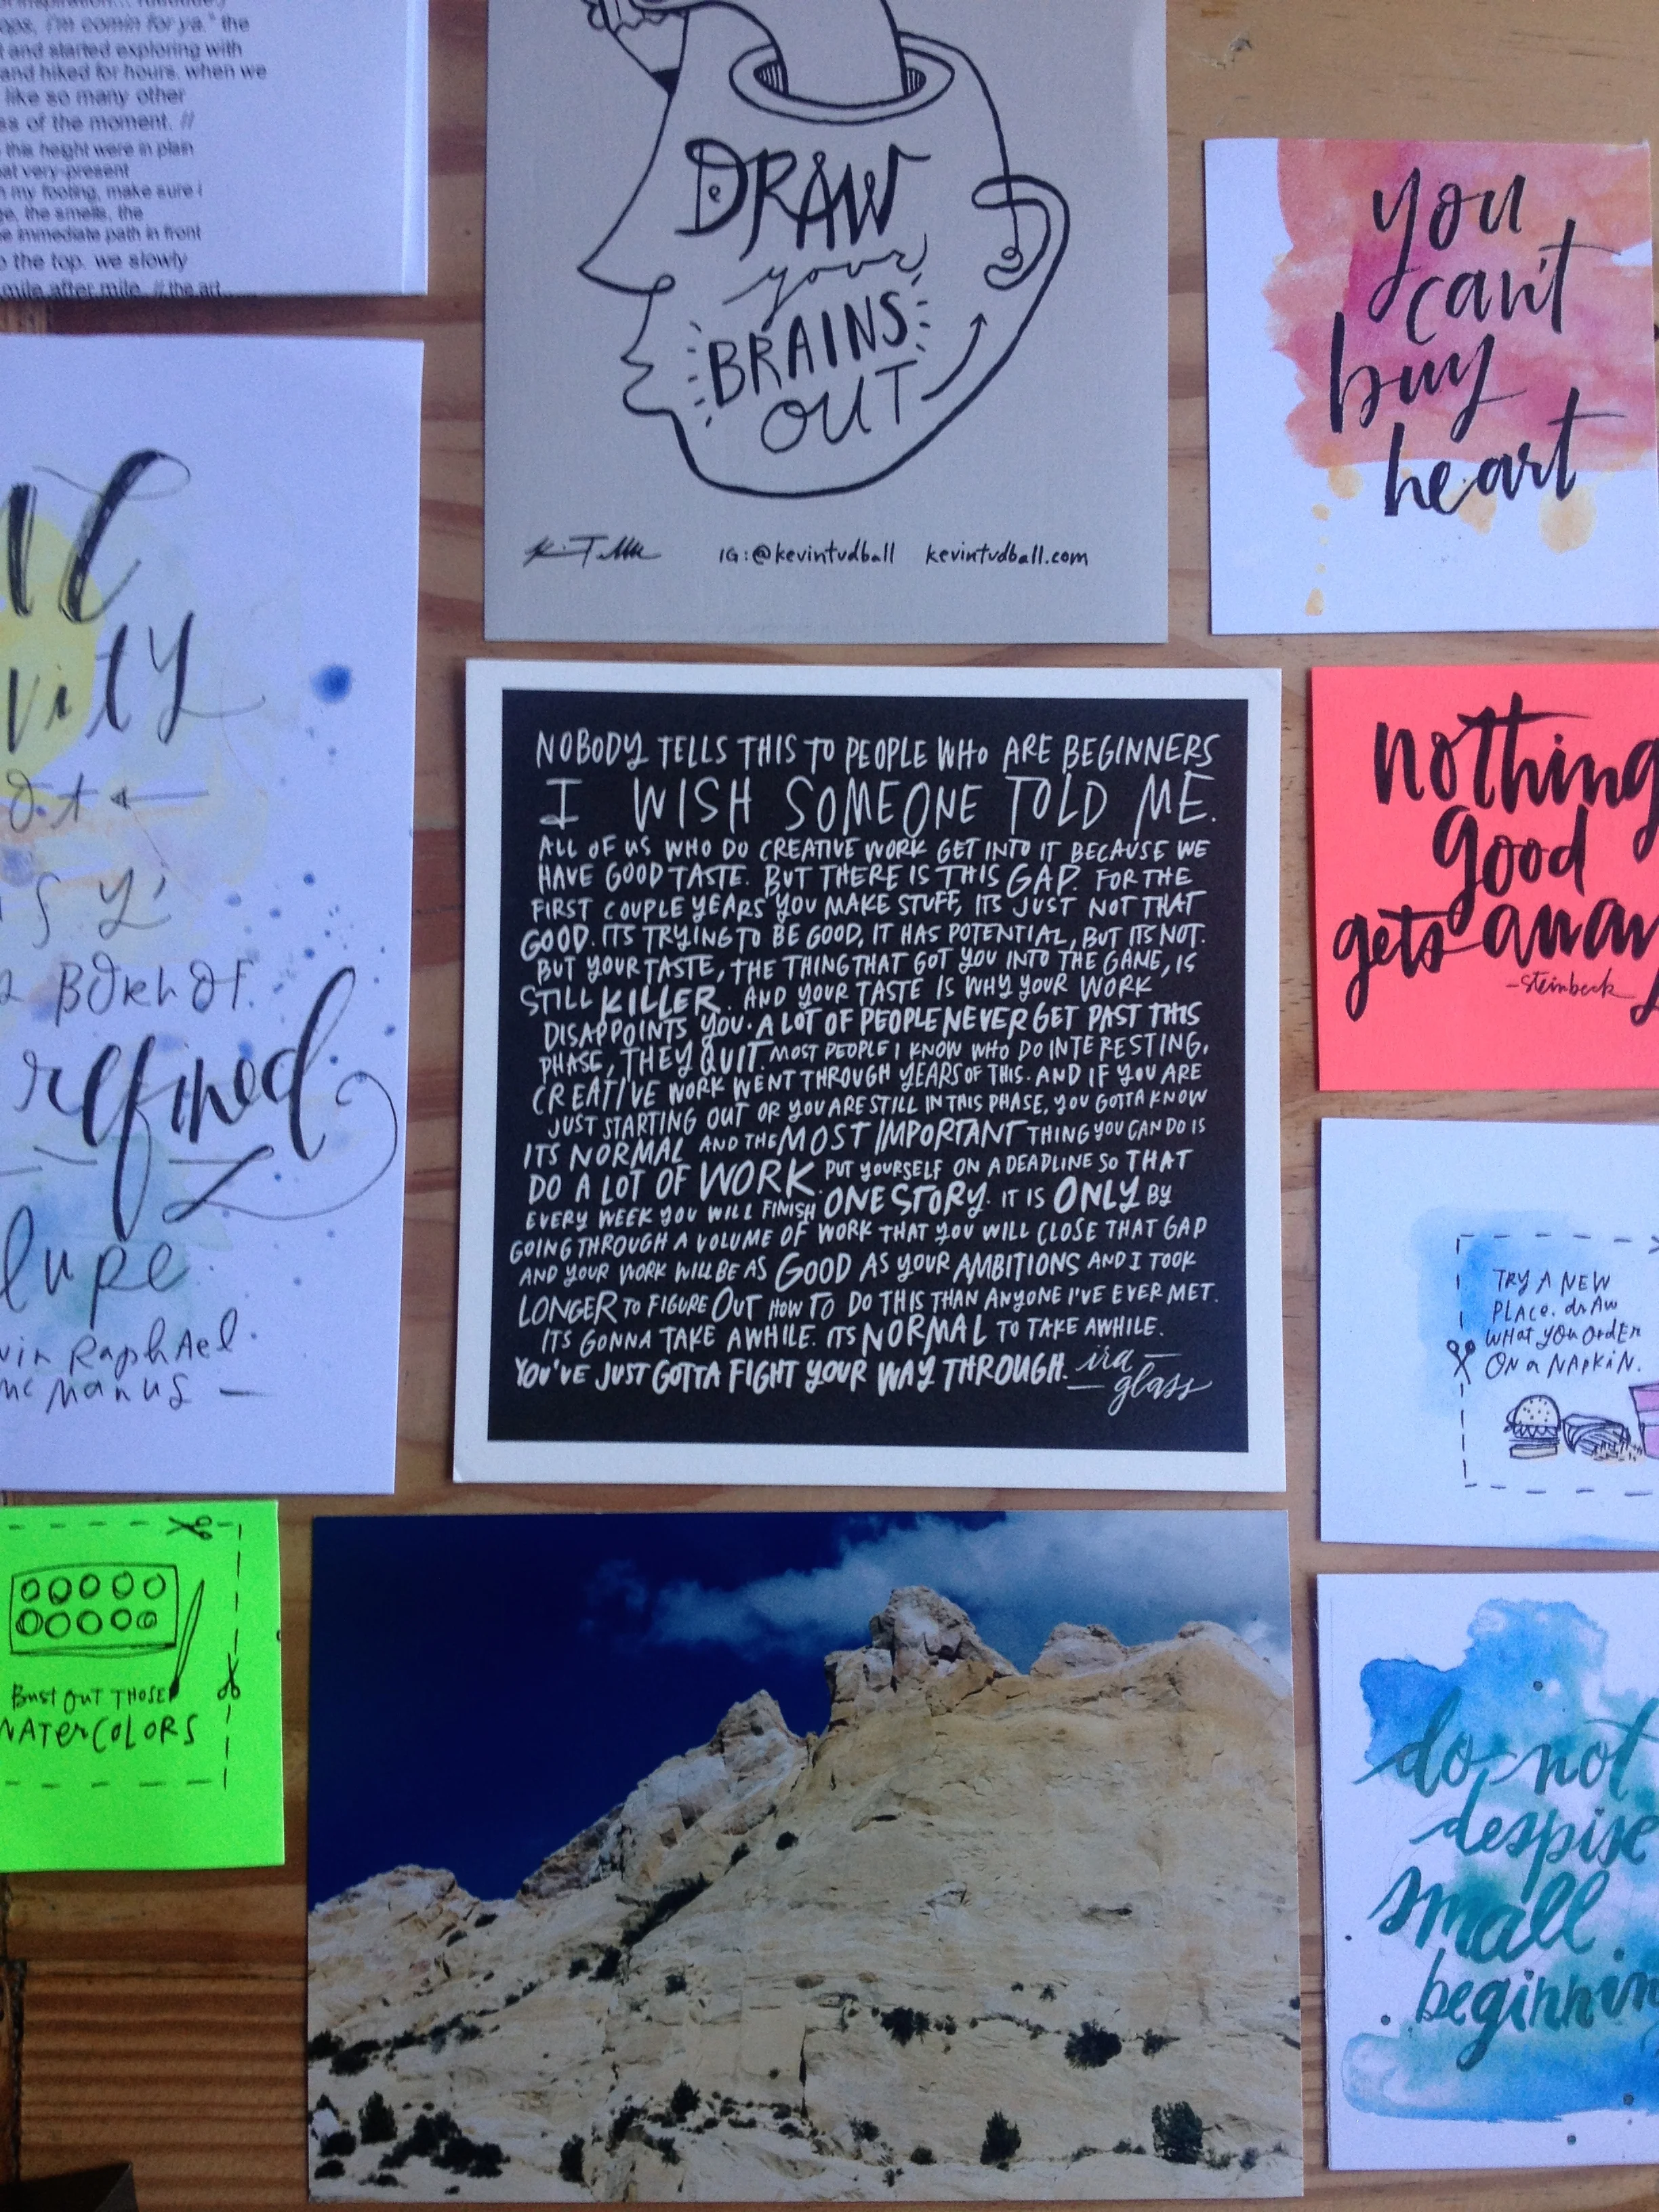 ops, i'm comin for ya." the
and started exploring with
and hiked for hours. when we
like so many other
of the moment. //
this height were in plain
very-present
my footing, make sure i
the smells, the
immediate path in front
the top. we slowly
mile after mile. // the art
DRAW
your
BRAINS
OUT
IG:@kevintudball kevintudball.com
you
can't
buy
heart
refined
Raphael
McManus
NOBODY TELLS THIS TO PEOPLE WHO ARE BEGINNERS
I WISH SOMEONE TOLD ME.
ALL OF US WHO DO CREATIVE WORK GET INTO IT BECAUSE WE
HAVE GOOD TASTE. BUT THERE IS THIS GAP. FOR THE
FIRST COUPLE YEARS YOU MAKE STUFF, ITS JUST NOT THAT
GOOD. ITS TRYING TO BE GOOD, IT HAS POTENTIAL, BUT ITS NOT.
BUT YOUR TASTE, THE THING THAT GOT YOU INTO THE GAME, IS
STILL KILLER. AND YOUR TASTE IS WHY YOUR WORK
DISAPPOINTS YOU. A LOT OF PEOPLE NEVER GET PAST THIS
PHASE, THEY QUIT. MOST PEOPLE I KNOW WHO DO INTERESTING,
CREATIVE WORK WENT THROUGH YEARS OF THIS. AND IF YOU ARE
JUST STARTING OUT OR YOU ARE STILL IN THIS PHASE, YOU GOTTA KNOW
ITS NORMAL AND THE MOST IMPORTANT THING YOU CAN DO IS
DO A LOT OF WORK. PUT YOURSELF ON A DEADLINE SO THAT
EVERY WEEK YOU WILL FINISH ONE STORY. IT IS ONLY BY
GOING THROUGH A VOLUME OF WORK THAT YOU WILL CLOSE THAT GAP
AND YOUR WORK WILL BE AS GOOD AS YOUR AMBITIONS AND I TOOK
LONGER TO FIGURE OUT HOW TO DO THIS THAN ANYONE I'VE EVER MET.
ITS GONNA TAKE AWHILE. ITS NORMAL TO TAKE AWHILE.
YOU'VE JUST GOTTA FIGHT YOUR WAY THROUGH. ira
glass
nothing
good
gets away
-steinbeck
TRY A NEW
PLACE. DRAW
WHAT YOU ORDER
ON A NAPKIN.
BUST OUT THOSE
WATERCOLORS
do not
despise
small
beginnin